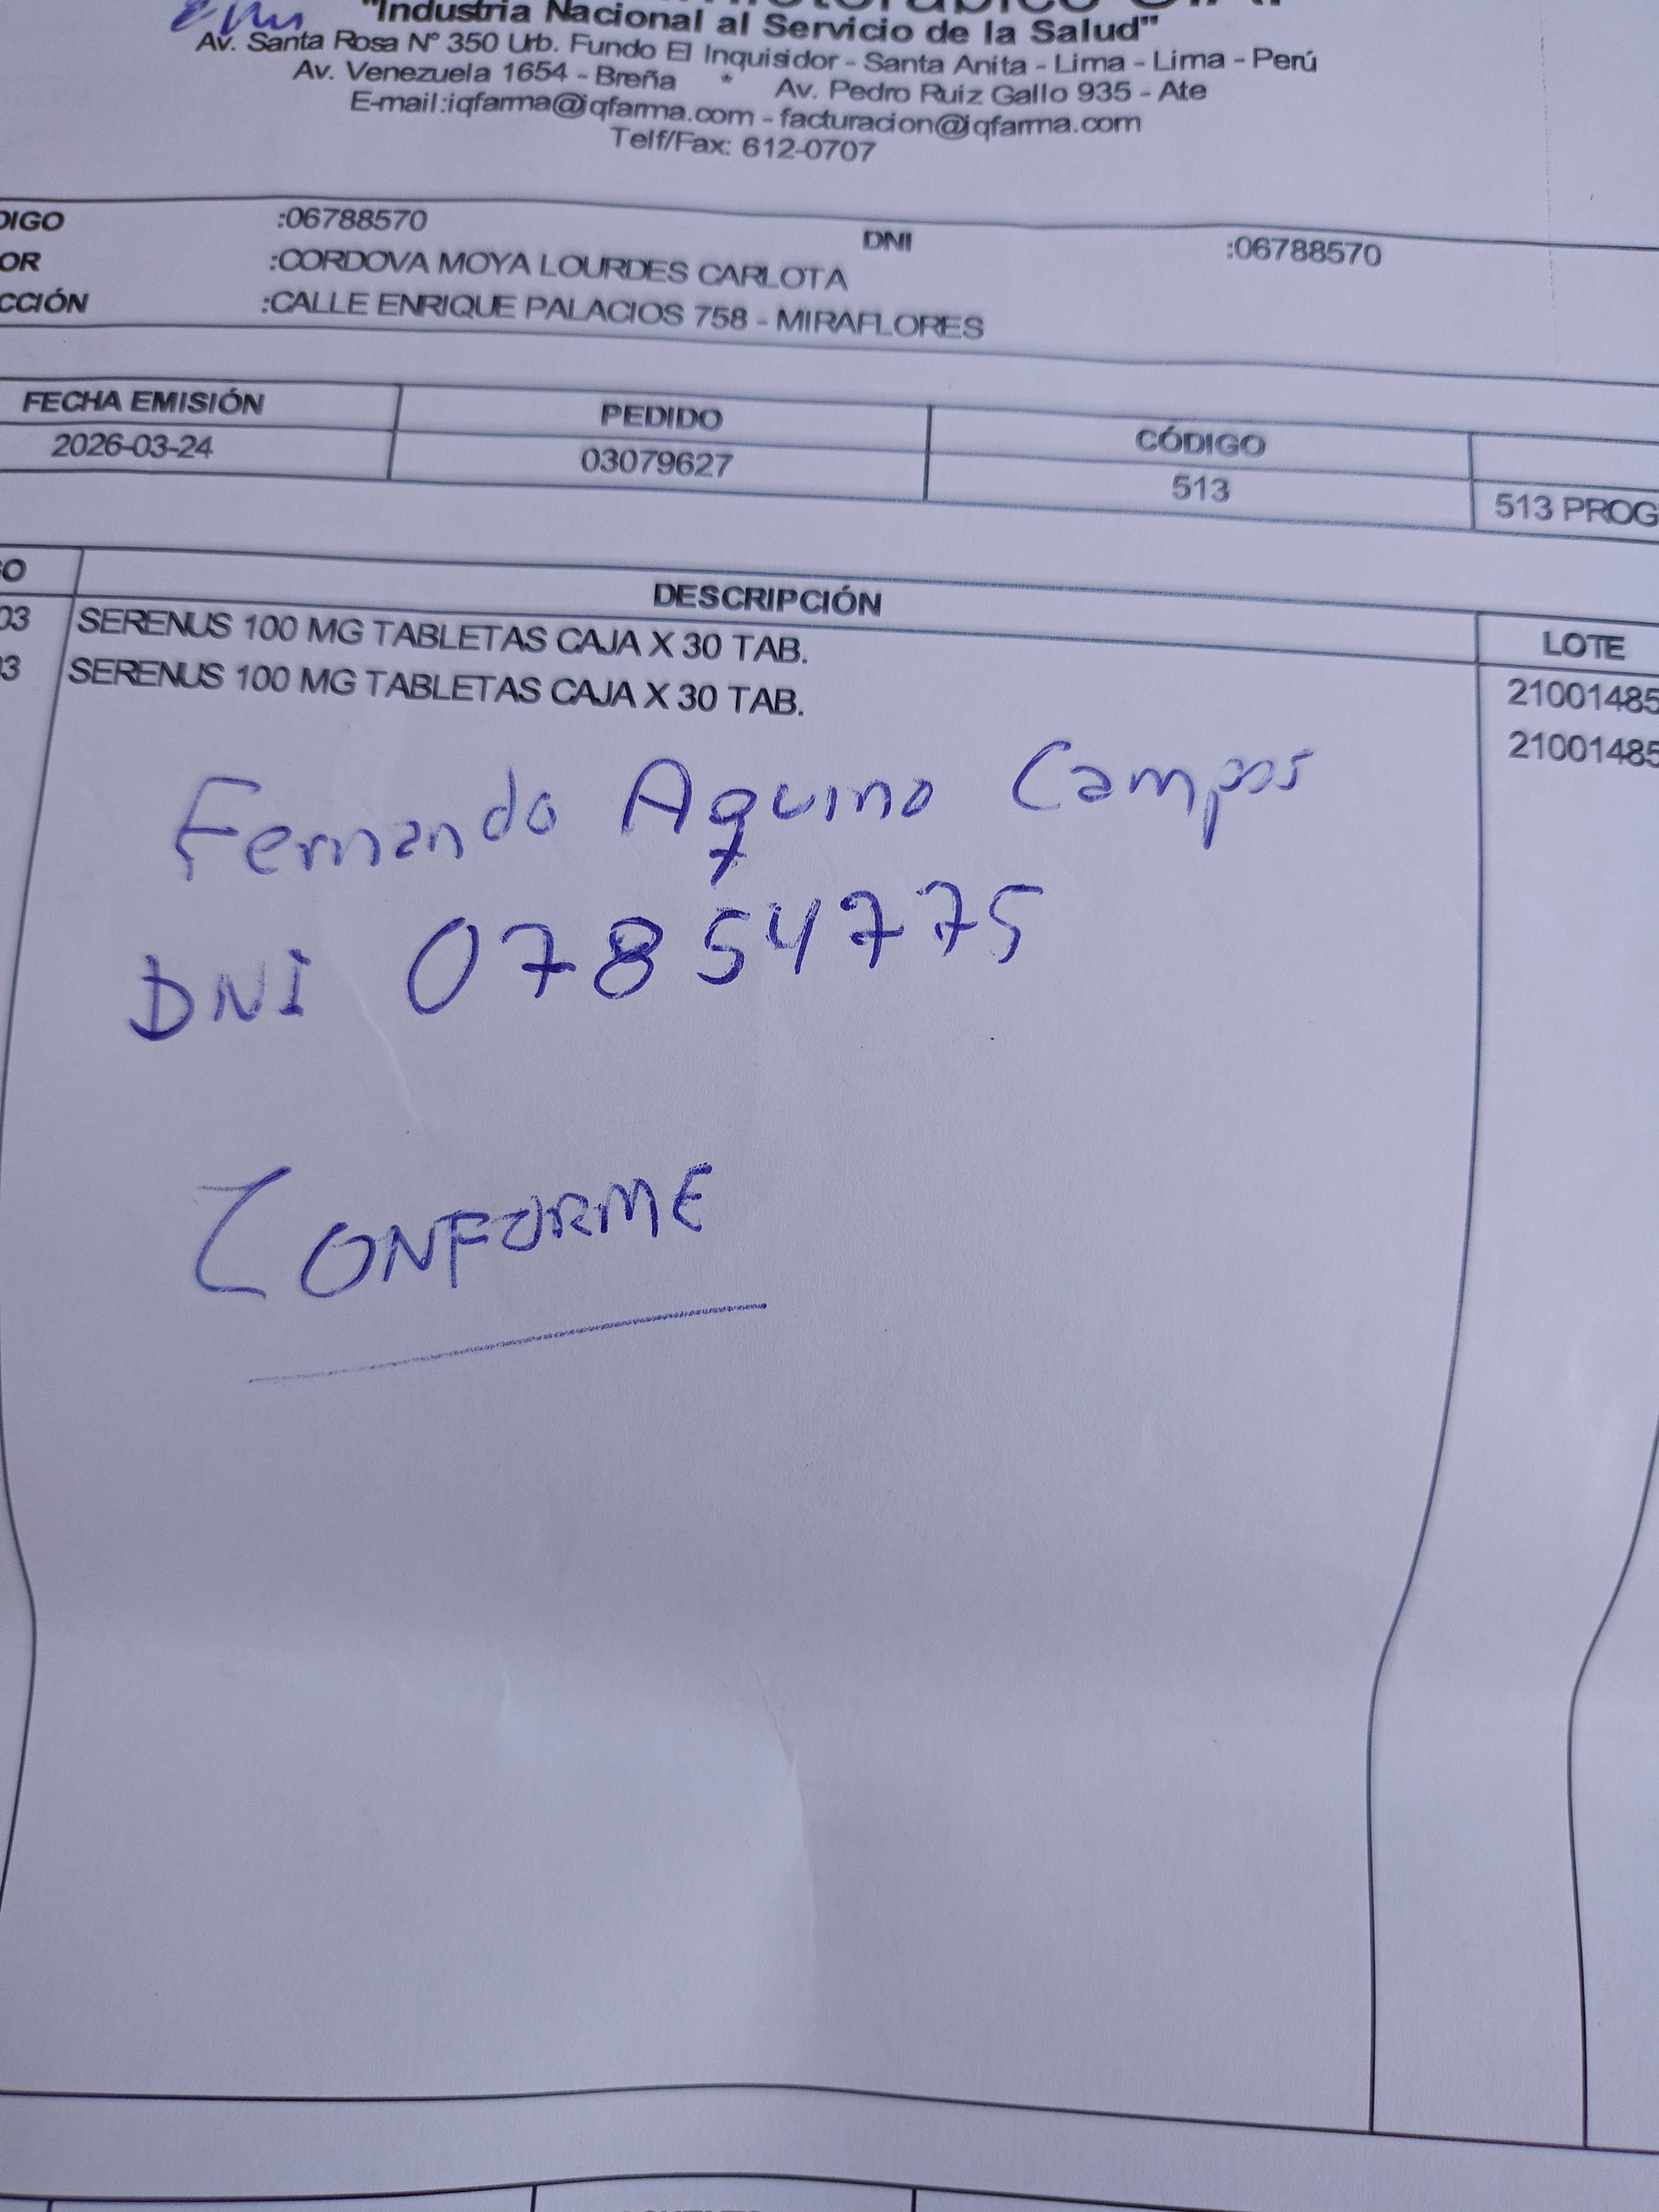 "Industria Nacional al Servicio de la Salud"
Av. Santa Rosa Nº 350 Urb. Fundo El Inquisidor - Santa Anita - Lima - Lima - Perú
Av. Venezuela 1654 - Breña * Av. Pedro Ruiz Gallo 935 - Ate
E-mail:iqfarma@iqfarma.com - facturacion@iqfarma.com
Telf/Fax: 612-0707
DIGO :06788570 DNI :06788570
OR :CORDOVA MOYA LOURDES CARLOTA
CCIÓN :CALLE ENRIQUE PALACIOS 758 - MIRAFLORES
FECHA EMISIÓN PEDIDO CÓDIGO
2026-03-24 03079627 513 513 PROG
GO DESCRIPCIÓN LOTE
03 SERENUS 100 MG TABLETAS CAJA X 30 TAB. 21001485
03 SERENUS 100 MG TABLETAS CAJA X 30 TAB. 21001485
Fernando Aquino Campos
DNI 07854775
CONFORME